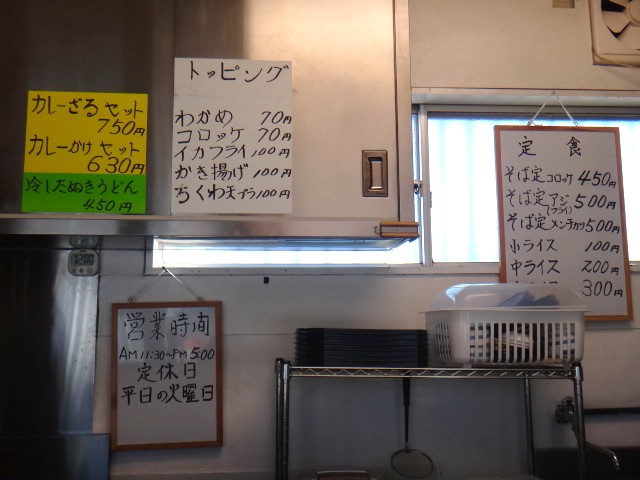 カレーざるセット
750円
カレーかけセット
630円
冷したぬきうどん
450円
トッピング
わかめ 70円
コロッケ 70円
イカフライ 100円
かき揚げ 100円
ちくわ天プラ 100円
定食
そば定コロッケ 450円
そば定アジ(フライ) 500円
そば定メンチカツ 500円
小ライス 100円
中ライス 200円
300円
営業時間
AM 11:30~PM 5:00
定休日
平日の火曜日
12:00